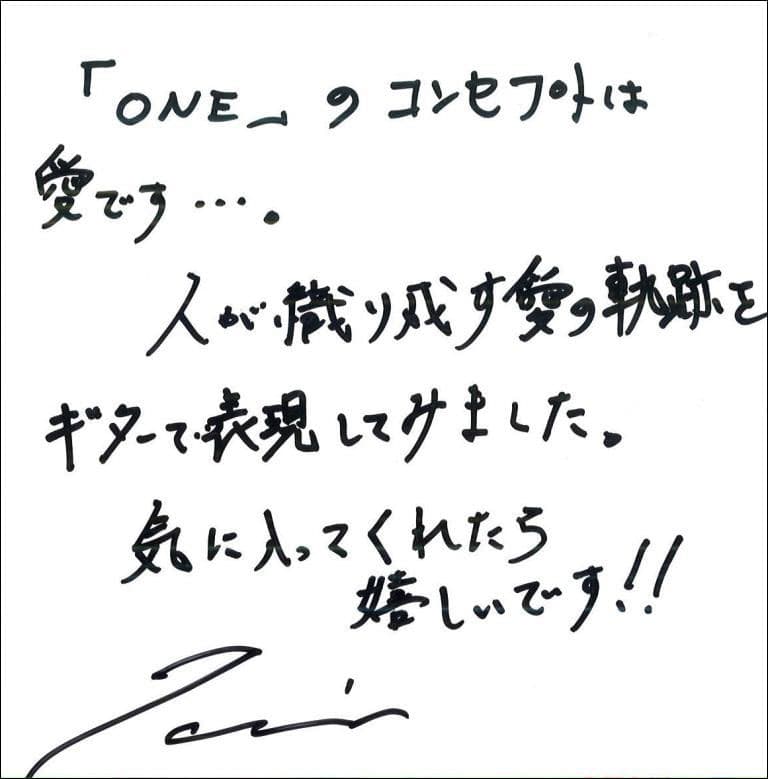 「ONE」のコンセプトは
愛です…。
人が織り成す愛の軌跡を
ギターで表現してみました。
気に入ってくれたら
嬉しいです!!